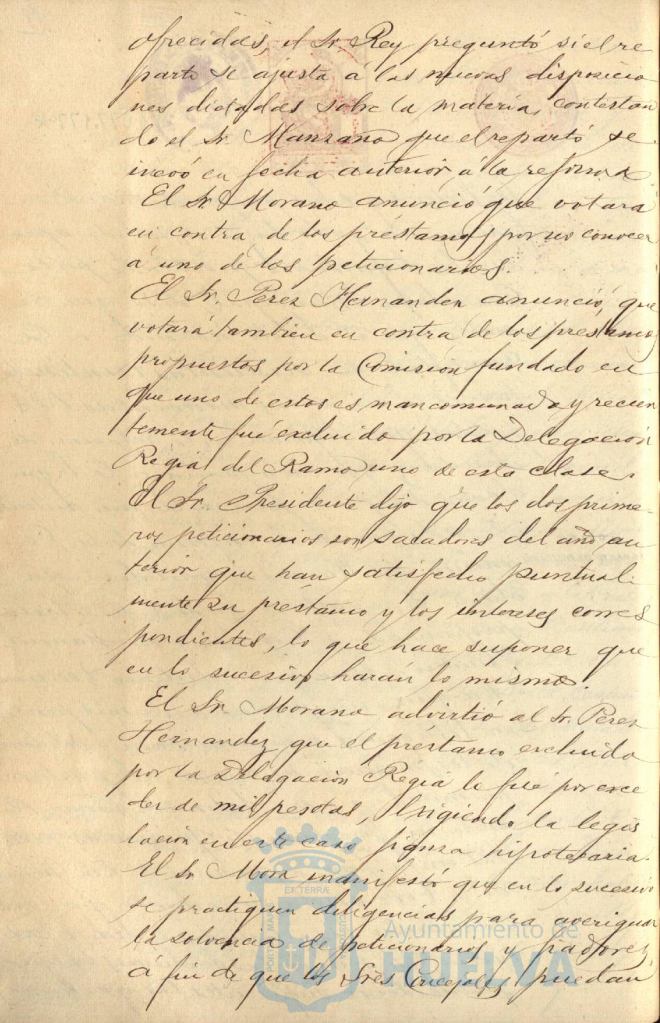 ofrecidas, el Sr. Rey preguntó si el re
parto se ajusta á las nuevas disposicio
nes dictadas sobre la materia, contestan
do el Sr. Manzano que el repartó se
inció en fecha anterior á la reforma
El Sr. Morano anunció que votara
en contra de los préstamos por no conocer
á uno de los peticionarios.
El Sr. Perez Hernandez anunció, que
votará tambien en contra de los prestamos
propuestos por la Comisión fundado en
que uno de estos es mancomunado y recien
temente fué excluido por la Delegación
Régia del Ramo uno de esta clase.
El Sr. Presidente dijo que los dos prime-
ros peticionarios son sacadores del año an
terior que han satisfecho puntual-
mente su préstamo y los intereses corres
pondientes, lo que hace suponer que
en lo sucesivo harán lo mismo.
El Sr. Morano advirtió al Sr. Pérez
Hernandez que el préstamo excluido
por la Delegación Régia lo fué por exce
der de mil pesetas, exigiendo la legis
lación en este caso fianza hipotecaria.
El Sr. Mora manifestó que en lo sucesivo
se practiquen diligencias para averiguar
la solvencia de peticionarios y fiadores,
á fin de que los Sres. Concejales puedan
Ayuntamiento de
HUELVA